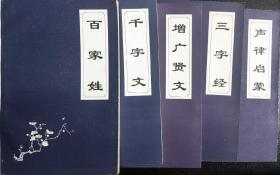 百家姓
千字文
增广贤文
三字经
声律启蒙